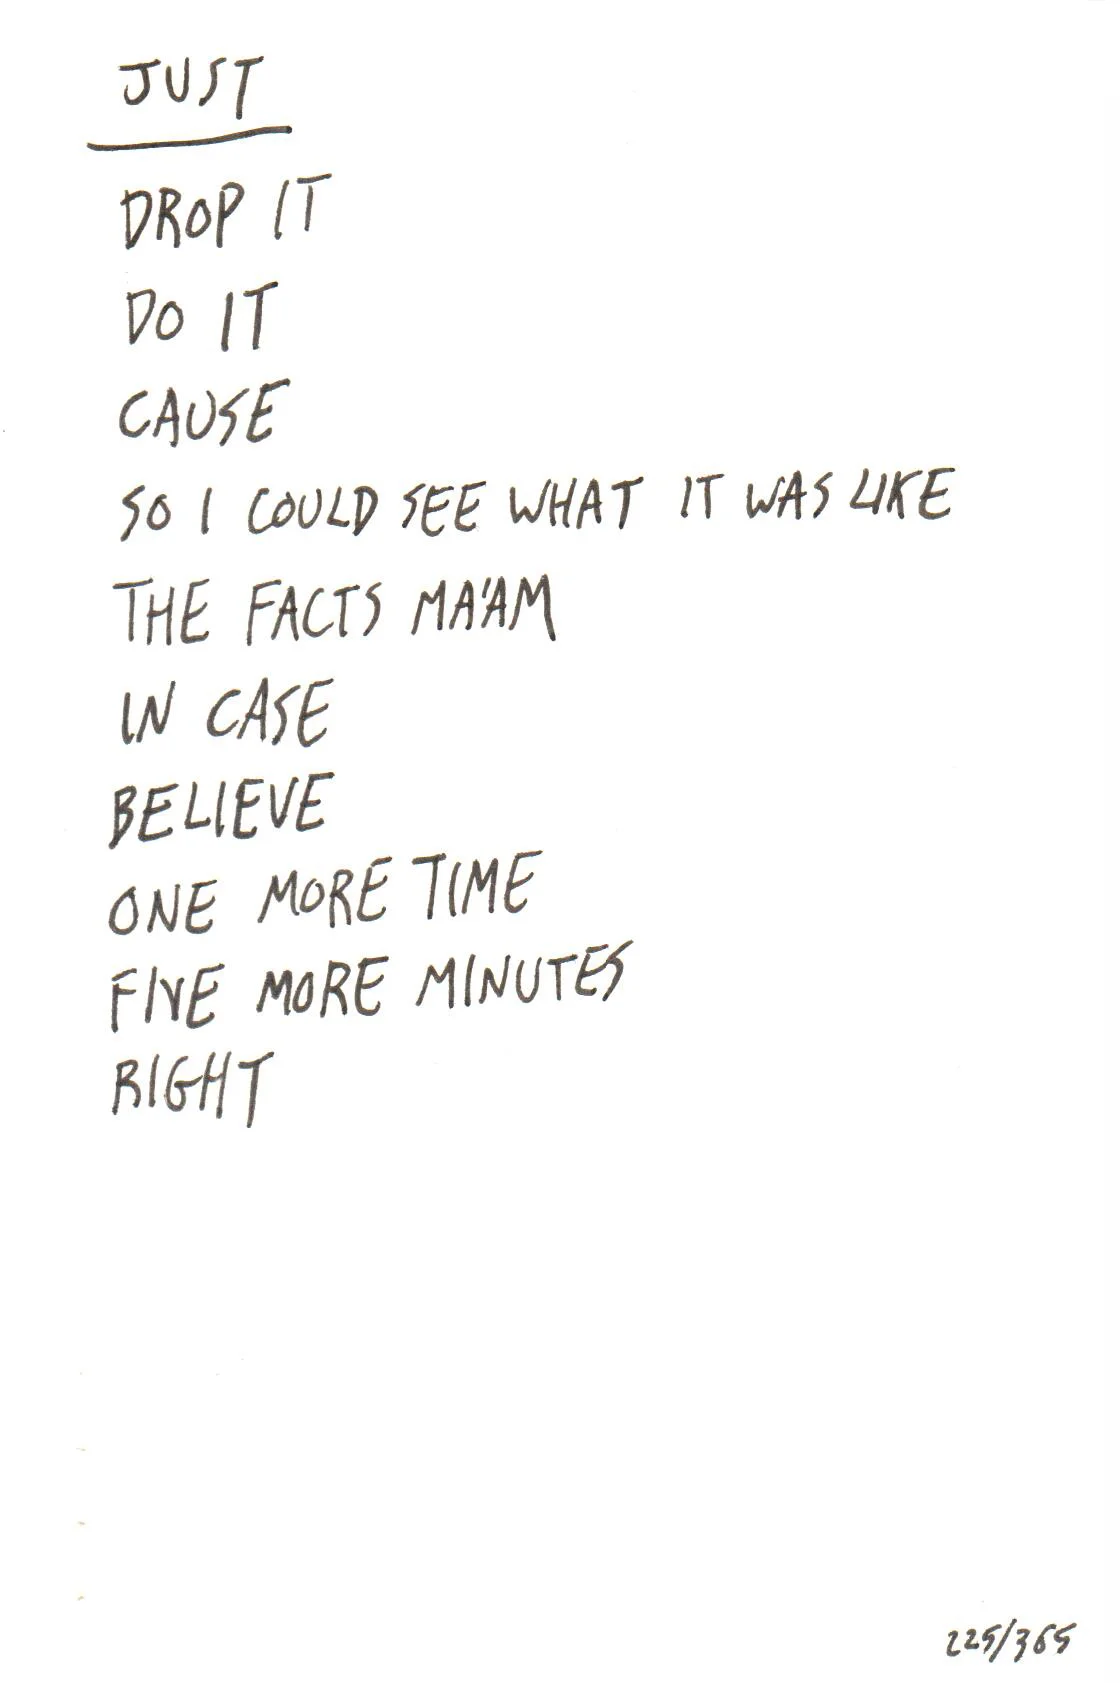 JUST
DROP IT
DO IT
CAUSE
SO I COULD SEE WHAT IT WAS LIKE
THE FACTS MA'AM
IN CASE
BELIEVE
ONE MORE TIME
FIVE MORE MINUTES
RIGHT
225/365